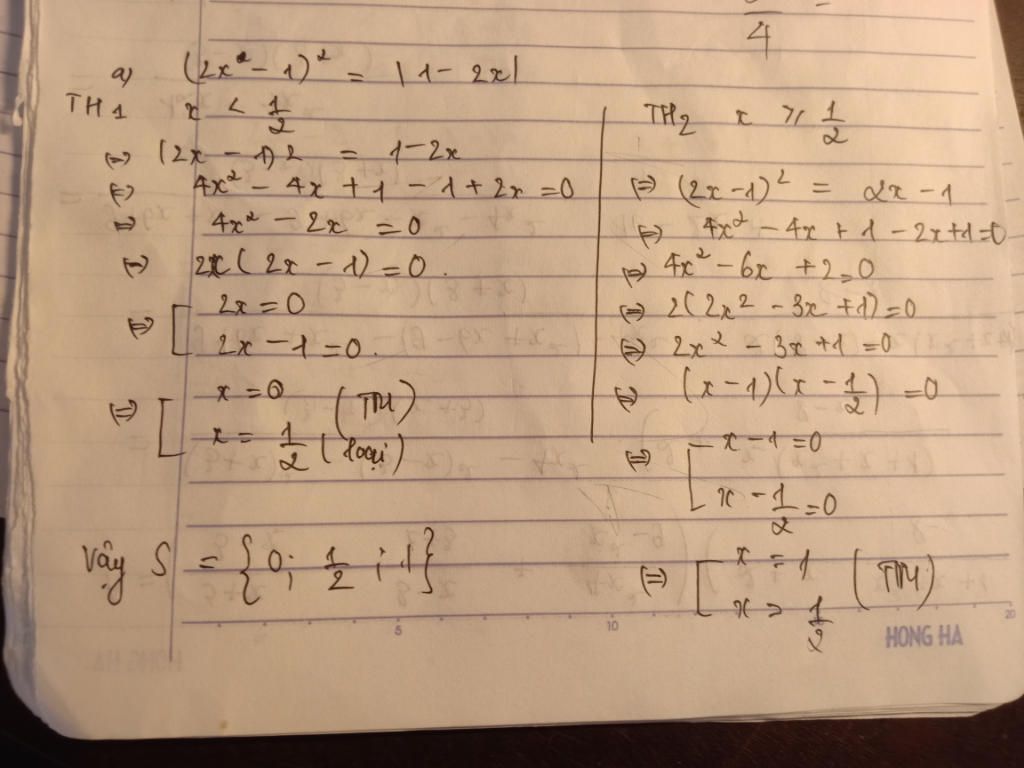 4
a) (2x² - 1)² = |1 - 2x|
TH1 x < 1/2
⇔ (2x - 1)2 = 1 - 2x
⇔ 4x² - 4x + 1 - 1 + 2x = 0
⇔ 4x² - 2x = 0
⇔ 2x(2x - 1) = 0.
⇔ [ 2x = 0
2x - 1 = 0.
⇔ [ x = 0 (TM)
x = 1/2 (loại)
TH2 x ⩾ 1/2
⇔ (2x - 1)² = 2x - 1
⇔ 4x² - 4x + 1 - 2x + 1 = 0
⇔ 4x² - 6x + 2 = 0
⇔ 2(2x² - 3x + 1) = 0
⇔ 2x² - 3x + 1 = 0
⇔ (x - 1)(x - 1/2) = 0
⇔ [ x - 1 = 0
x - 1/2 = 0
⇔ [ x = 1 (TM)
x = 1/2
Vậy S = {0; 1/2; 1}
5 10 20
HONG HA